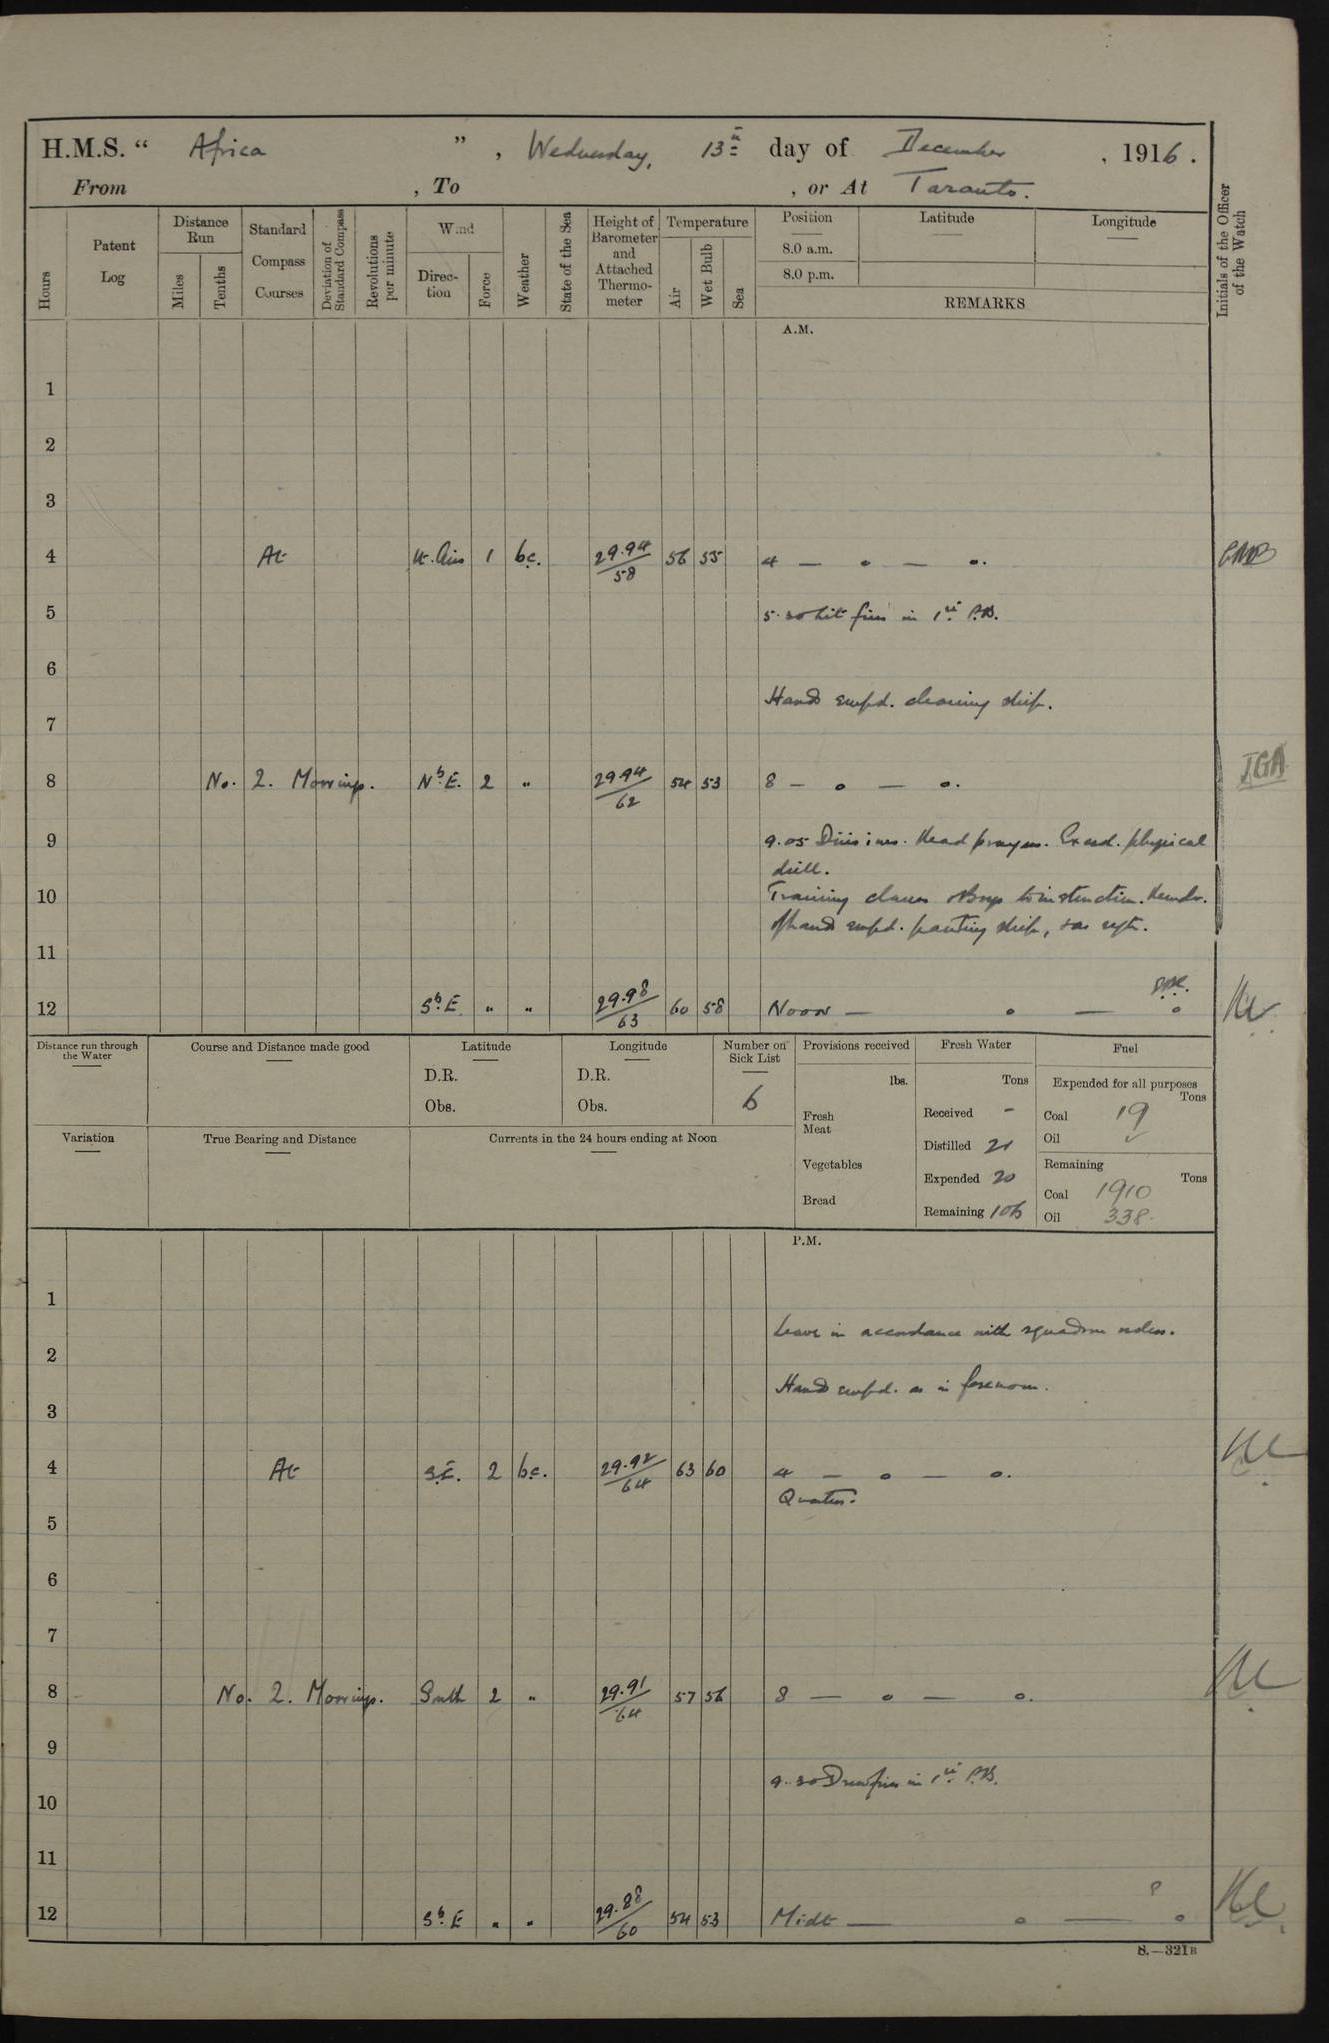 H.M.S. “ Africa ” , Wednesday, 13th day of December , 1916 .
From , To , or At Taranto.
Hours
Patent Log
Distance Run
Miles
Tenths
Standard Compass Courses
Deviation of Standard Compass
Revolutions per minute
Wind
Direc-tion
Force
Weather
State of the Sea
Height of Barometer and Attached Thermo-meter
Temperature
Air
Wet Bulb
Sea
Position
8.0 a.m.
8.0 p.m.
Latitude
Longitude
REMARKS
Initials of the Officer of the Watch
A.M.
1
2
3
4 At Lt. Airs 1 bc. 29.94/58 56 55 4 — o — o.
5 5.30 Lit fires in 1st P.B.
6
Hands empd. cleaning ship.
7
8 No. 2. Moorings. NbE. 2 " 29.94/62 54 53 8 — o — o. IGA
9 9.05 Divisions. Read prayers. Exerd. physical
drill.
10 Training classes & Boys to instruction. Remdr.
of hands empd. painting ship, & as reqte.
11
12 SbE. " " 29.98/63 60 58 Noon — o — o
Distance run through the Water
Course and Distance made good
Latitude
D.R.
Obs.
Longitude
D.R.
Obs.
Number on Sick List
6
Provisions received
lbs.
Fresh Meat
Vegetables
Bread
Fresh Water
Tons
Received -
Distilled 21
Expended 20
Remaining 106
Fuel
Expended for all purposes
Tons
Coal 19
Oil ✓
Remaining
Tons
Coal 1910
Oil 338.
Variation
True Bearing and Distance
Currents in the 24 hours ending at Noon
P.M.
1
Leave in accordance with squadron orders.
2
Hands empd. as in forenoon.
3
4 At S.E. 2 bc. 29.92/64 63 60 4 — o — o.
Quarters.
5
6
7
8 No. 2. Moorings. South 2 " 29.91/64 57 56 8 — o — o.
9
9.30 Drew fires in 1st P.B.
10
11
12 SbE " " 29.88/60 54 53 Midt — o — o
S.—321B